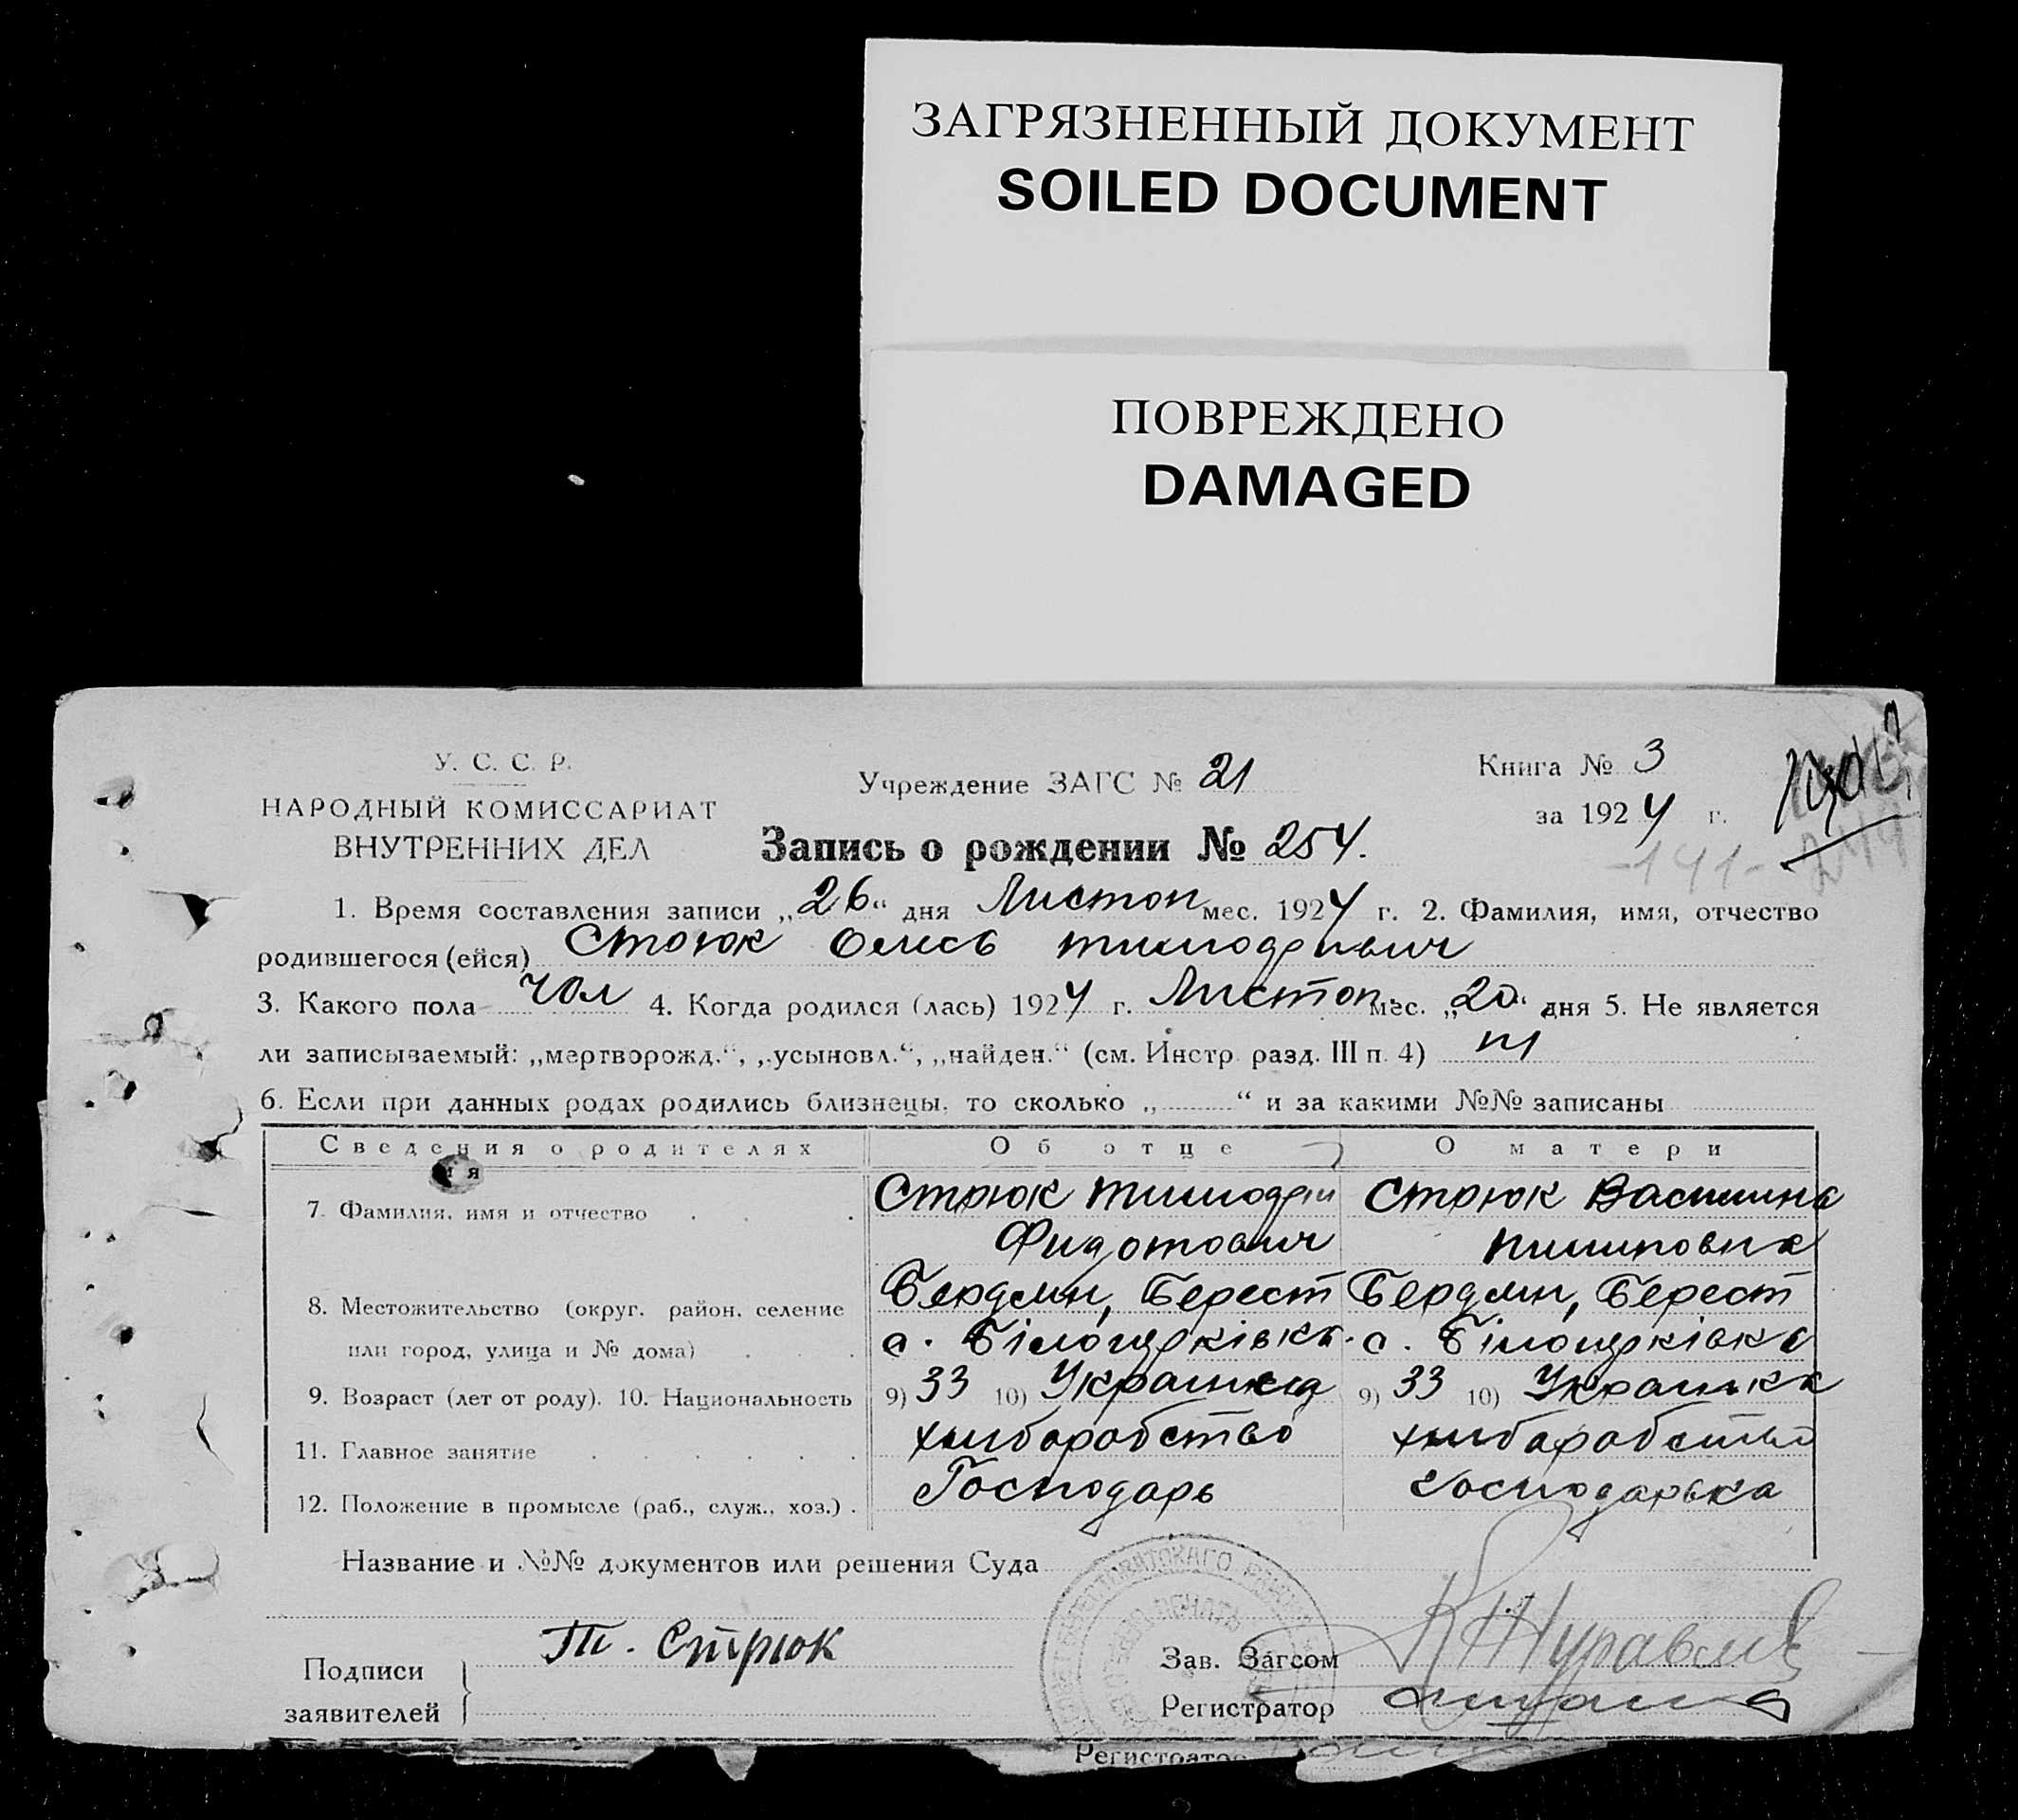 ЗАГРЯЗНЕННЫЙ ДОКУМЕНТ
SOILED DOCUMENT
ПОВРЕЖДЕНО
DAMAGED
У. С. С. Р.
НАРОДНЫЙ КОМИССАРИАТ
ВНУТРЕННИХ ДЕЛ
Учреждение ЗАГС № 21
Книга № 3
за 1924 г.
Запись о рождении № 254.
-141-
1. Время составления записи „26“ дня Листоп мес. 1924 г. 2. Фамилия, имя, отчество
родившегося (ейся) Строюк Олесь
3. Какого пола чол 4. Когда родился (лась) 1924 г. Листоп. мес. „20“ дня 5. Не является
ли записываемый: „мертворожд.“, „усыновл.“, „найден.“ (см. Инстр. разд. III п. 4) ні
6. Если при данных родах родились близнецы, то сколько „ “ и за какими №№ записаны
Сведения о родителях Об отце О матери
7. Фамилия, имя и отчество Стрюк Тимофій Стрюк Василина
Фидотович Пилиповна
8. Местожительство (округ, район, селение Бердян, Берест Бердян, Берест
или город, улица и № дома) с. Білоцерківка с. Білоцерківка
9. Возраст (лет от роду). 10. Национальность 9) 33 10) 9) 33 10) Українка
11. Главное занятие хлибаробство хлибаробство
12. Положение в промысле (раб., служ., хоз.) Господарь господарька
Название и №№ документов или решения Суда
Подписи
заявителей
Т. Стрюк
Зав. Загсом
Регистратор
Регистратор